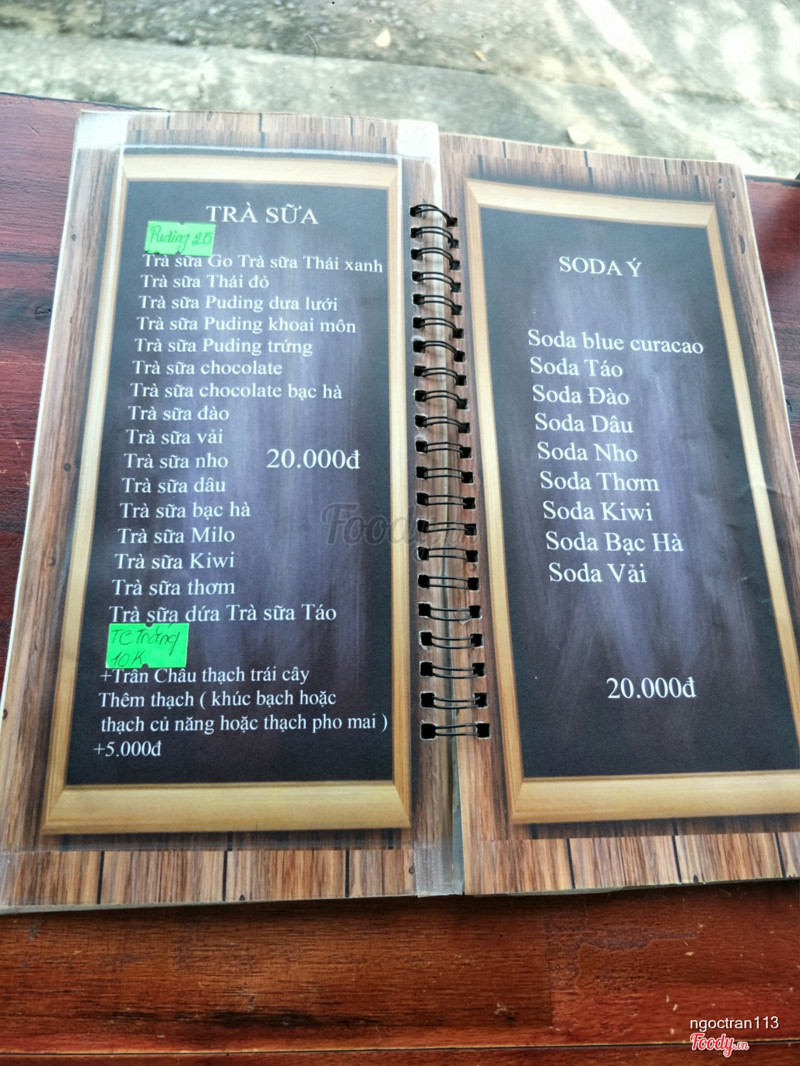 TRÀ SỮA
Puding 25
Trà sữa Go Trà sữa Thái xanh
Trà sữa Thái đỏ
Trà sữa Puding dưa lưới
Trà sữa Puding khoai môn
Trà sữa Puding trứng
Trà sữa chocolate
Trà sữa chocolate bạc hà
Trà sữa đào
Trà sữa vải
Trà sữa nho 20.000đ
Trà sữa dâu
Trà sữa bạc hà
Trà sữa Milo
Trà sữa Kiwi
Trà sữa thơm
Trà sữa dứa Trà sữa Táo
TC Trắng
10K
+Trân Châu thạch trái cây
Thêm thạch ( khúc bạch hoặc
thạch củ năng hoặc thạch pho mai )
+5.000đ
SODA Ý
Soda blue curacao
Soda Táo
Soda Đào
Soda Dâu
Soda Nho
Soda Thơm
Soda Kiwi
Soda Bạc Hà
Soda Vải
20.000đ
Foody.vn
ngoctran113
Foody.vn